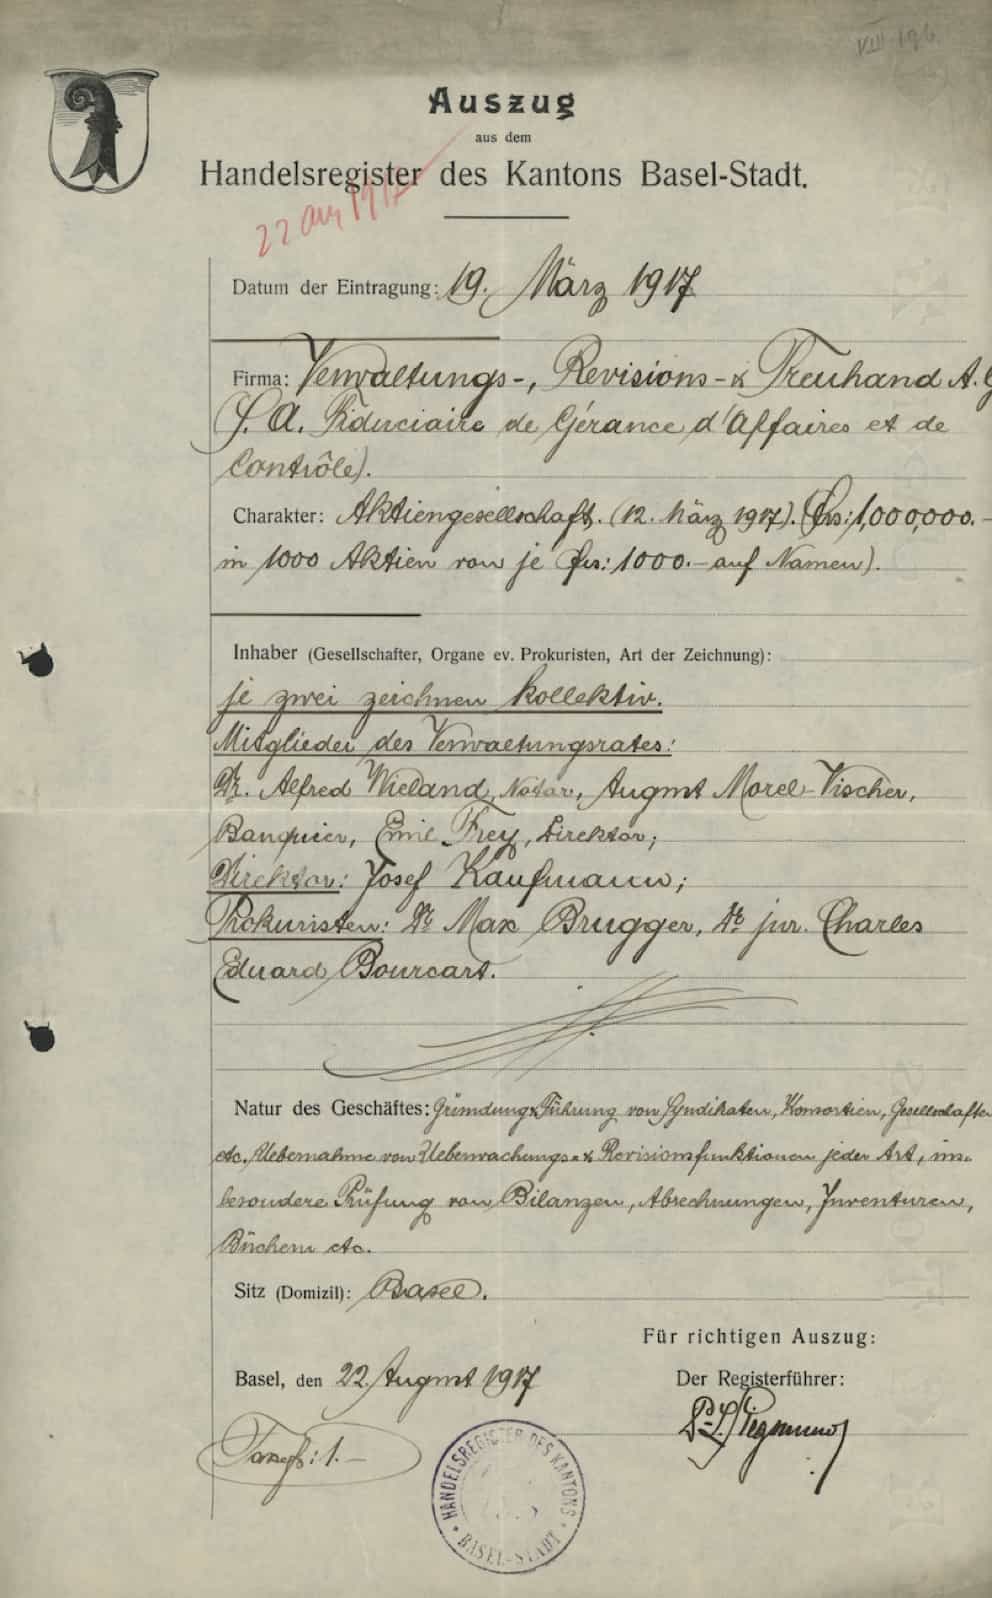 VIII 196
Auszug
aus dem
Handelsregister des Kantons Basel-Stadt.
22 Aug 1917
Datum der Eintragung: 19. März 1917
Firma: Verwaltungs-, Revisions- & Treuhand A.G
(S. A. Fiduciaire de Gérance d'Affaires et de
Contrôle).
Charakter: Aktiengesellschaft. (12. März 1917). (frs: 1,000,000.-
in 1000 Aktien von je frs: 1000.- auf Namen).
Inhaber (Gesellschafter, Organe ev. Prokuristen, Art der Zeichnung):
je zwei zeichnen kollektiv.
Mitglieder des Verwaltungsrates:
Dr. Alfred Wieland, Notar, August Morel-Vischer,
Banquier, Emil Frey, Direktor;
Direktor: Josef Kaufmann;
Prokuristen: Dr Max Brugger, Dr jur. Charles
Eduard Bourcart.
Natur des Geschäftes: Gründung & Führung von Syndikaten, Konsortien, Gesellschaften
etc. Uebernahme von Ueberwachungs- & Revisionsfunktionen jeder Art, ins-
besondere Prüfung von Bilanzen, Abrechnungen, Inventuren,
Büchern etc.
Sitz (Domizil): Basel.
Für richtigen Auszug:
Basel, den 22. August 1917
Der Registerführer:
: 1.-
HANDELSREGISTER DES KANTONS
BASEL-STADT